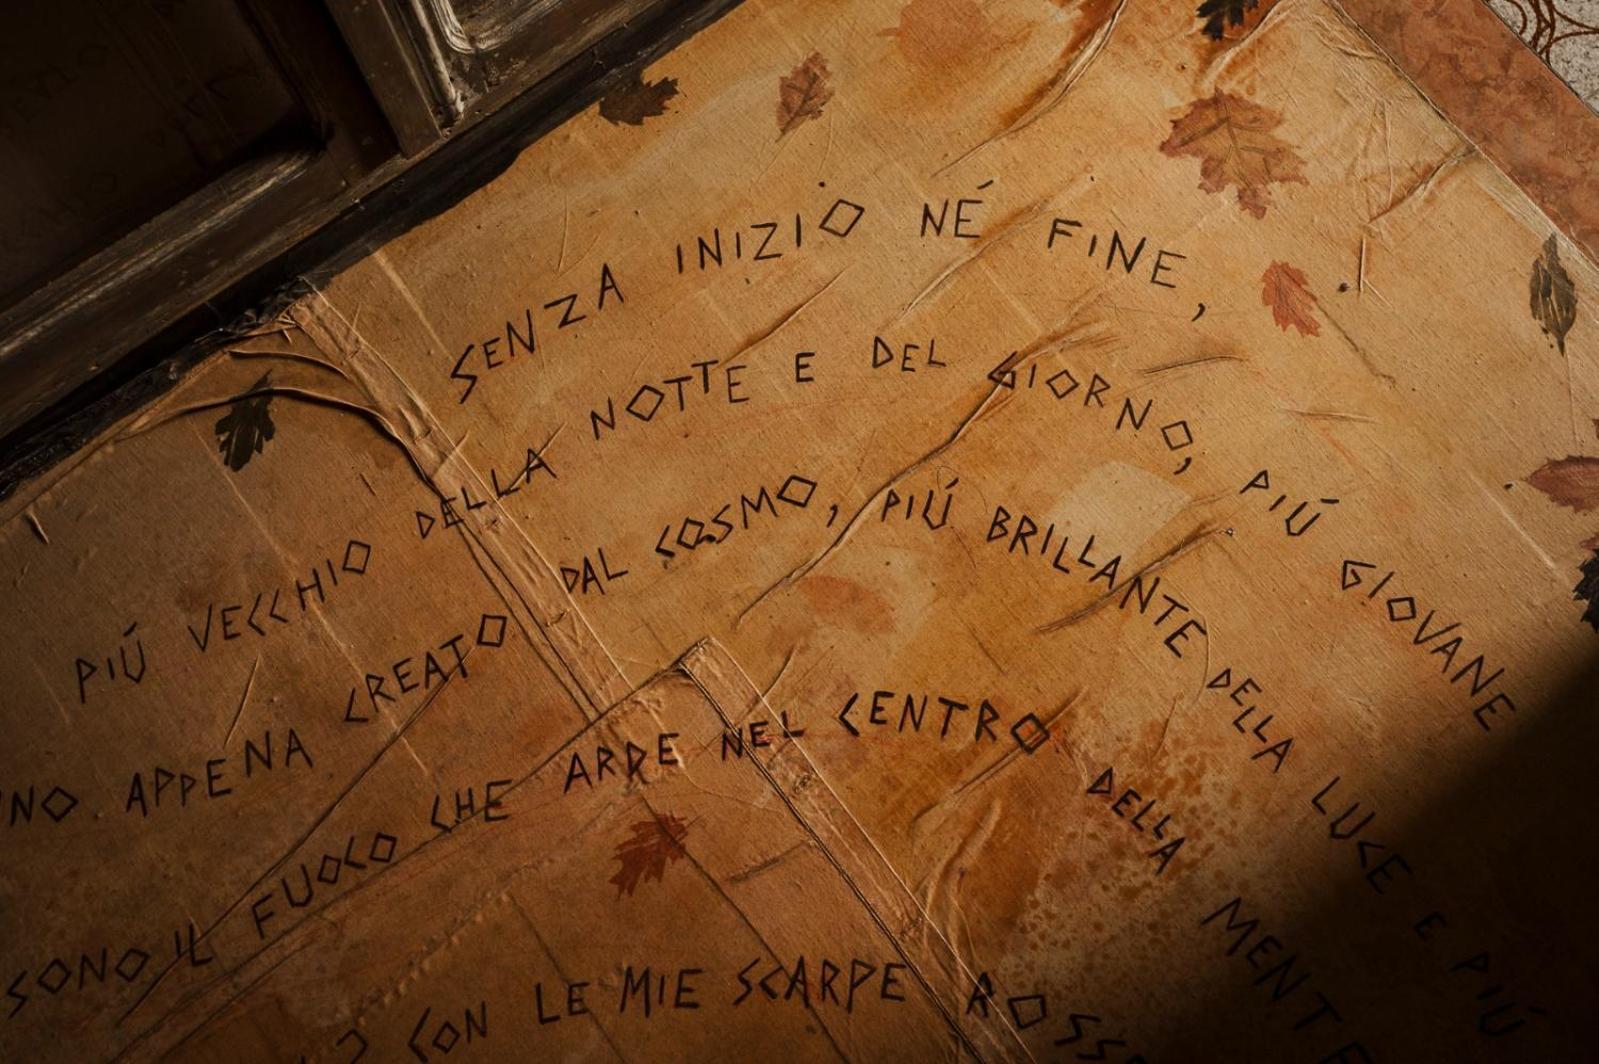 SENZA INIZIO NÉ FINE,
PIÚ VECCHIO DELLA NOTTE E DEL GIORNO, PIÚ GIOVANE
APPENA CREATO DAL COSMO, PIÚ BRILLANTE DELLA LUCE E PIÚ
SONO IL FUOCO CHE ARDE NEL CENTRO DELLA MENTE
CON LE MIE SCARPE ROSSE